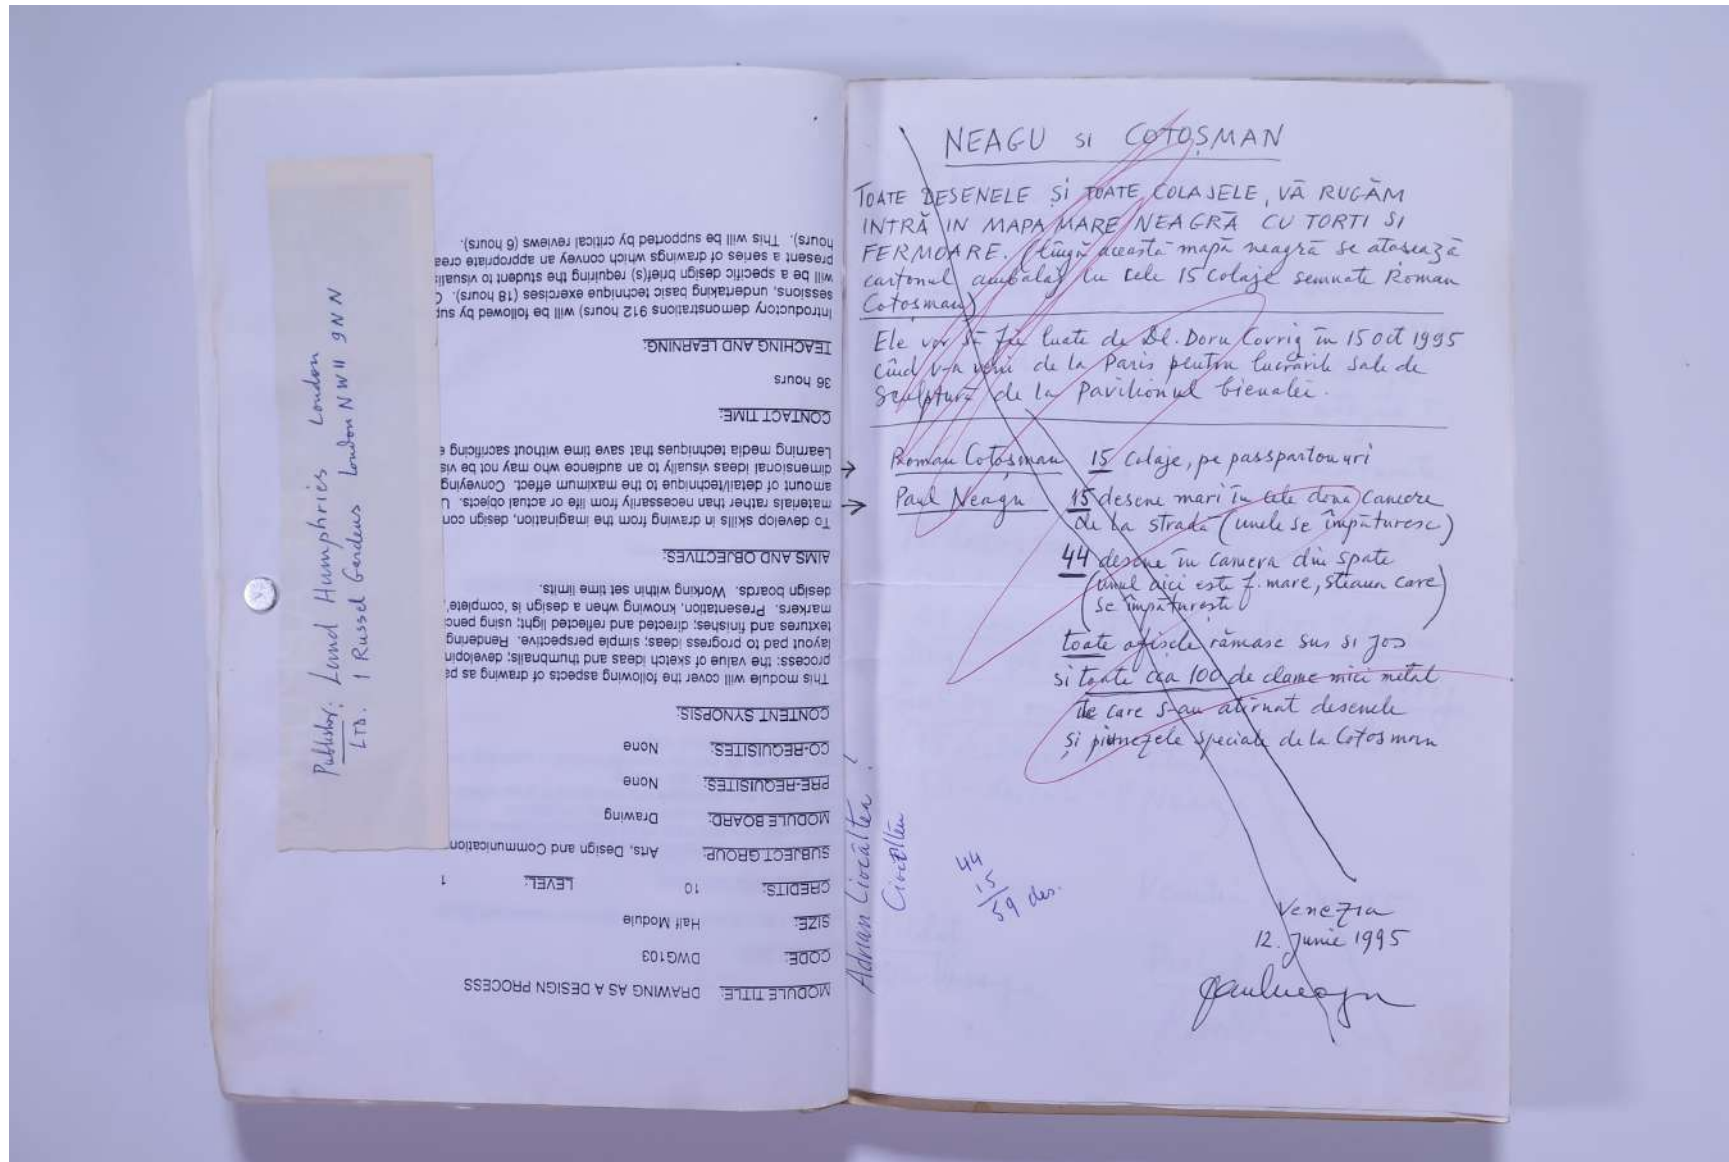 Publisher: Lund Humphries London
LTD. 1 Russel Gardens London NW11 9NN
MODULE TITLE: DRAWING AS A DESIGN PROCESS
CODE: DWG103
SIZE: Half Module
CREDITS: 10 LEVEL: 1
SUBJECT GROUP: Arts, Design and Communication
MODULE BOARD: Drawing
PRE-REQUISITES: None
CO-REQUISITES: None
CONTENT SYNOPSIS:
This module will cover the following aspects of drawing as pa
process: the value of sketch ideas and thumbnails; developin
layout pad to progress ideas; simple perspective. Rendering
textures and finishes; directed and reflected light; using penc
markers. Presentation, knowing when a design is 'complete',
design boards. Working within set time limits.
AIMS AND OBJECTIVES:
To develop skills in drawing from the imagination, design con
materials rather than necessarily from life or actual objects. U
amount of detail/technique to the maximum effect. Conveying
dimensional ideas visually to an audience who may not be vis
Learning media techniques that save time without sacrificing e
CONTACT TIME:
36 hours
TEACHING AND LEARNING:
Introductory demonstrations 912 hours) will be followed by sup
sessions, undertaking basic technique exercises (18 hours). C
will be a specific design brief(s) requiring the student to visualis
present a series of drawings which convey an appropriate crea
hours). This will be supported by critical reviews (6 hours).
Adrian Ciocâltea?
NEAGU SI COTOȘMAN
TOATE DESENELE ȘI TOATE COLAJELE, VĂ RUGĂM
INTRĂ IN MAPA MARE NEAGRĂ CU TORTI SI
FERMOARE. (lîngă această mapă neagră se atașează
cartonul ambalaj cu cele 15 colaje semnate Roman
Cotoșman)
Ele vor să fie luate de Dl. Doru Covrig în 15 oct 1995
cînd v-a veni de la Paris pentru lucrările sale de
Sculptură de la Pavilionul bienalei.
→ Roman Cotoșman 15 colaje, pe passpartouuri
→ Paul Neagu 15 desene mari în cele două camere
de la stradă (unele se împăturesc)
44 desene în camera din spate
(unul aici este f. mare, steaua care
se împăturește)
toate afișele rămase sus si jos
si toate cca 100 de clame mici metal
de care s-au atîrnat desenele
și piunezele speciale de la Cotosman
44
15
59 des.
Venezia
12. Junie 1995
Paul Neagu